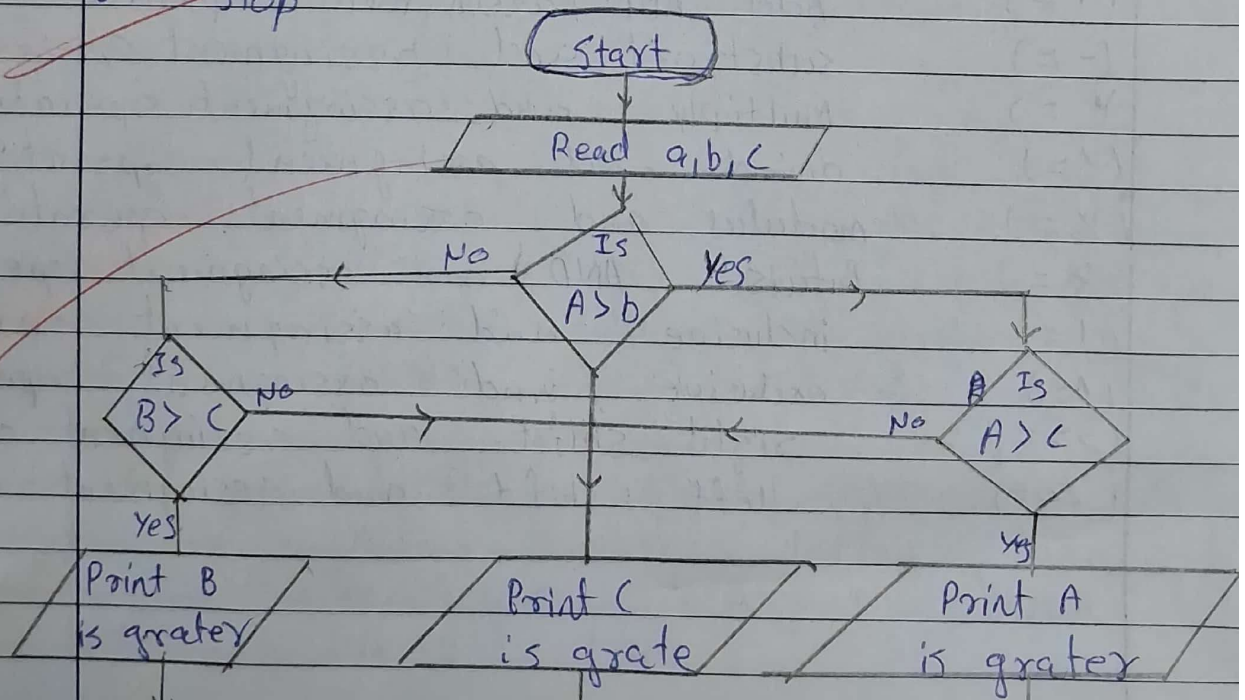 Start
Read a, b, c
Is
A > b
No
Yes
Is
B > C
No
Yes
Is
A > C
No
Yes
Print B
is grater
Print C
is grate
Print A
is grater